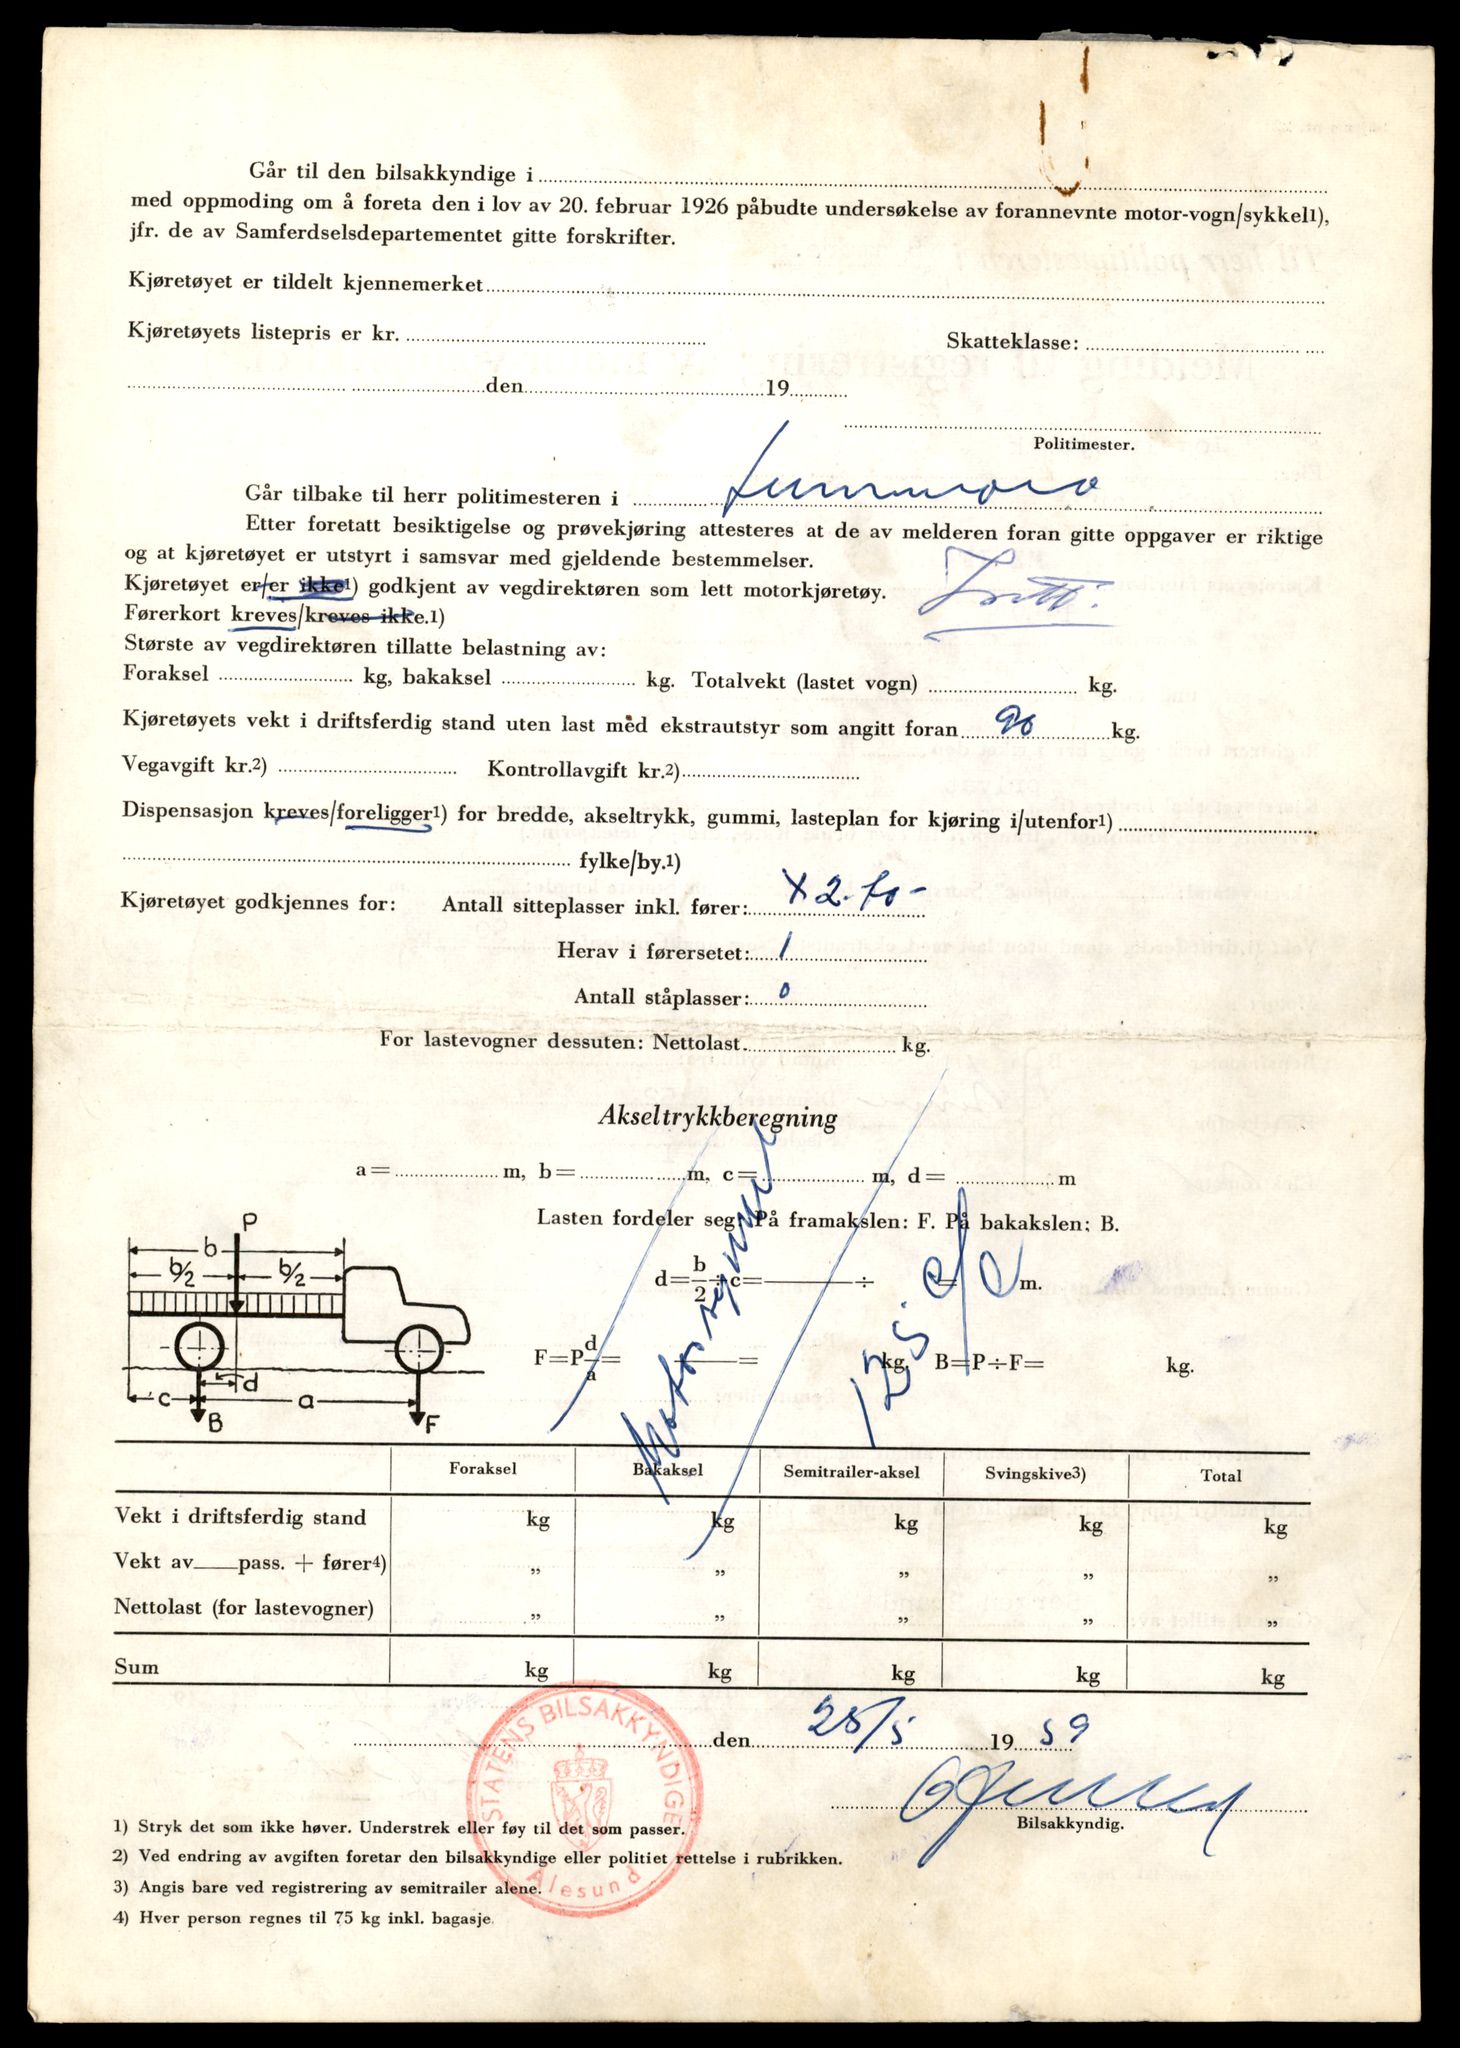 Går til den bilsakkyndige i
med oppmoding om å foreta den i lov av 20. februar 1926 påbudte undersøkelse av forannevnte motor-vogn/sykkel1),
jfr. de av Samferdselsdepartementet gitte forskrifter.
Kjøretøyet er tildelt kjennemerket
Kjøretøyets listepris er kr. Skatteklasse:
den 19
Politimester.
Går tilbake til herr politimesteren i
Etter foretatt besiktigelse og prøvekjøring attesteres at de av melderen foran gitte oppgaver er riktige
og at kjøretøyet er utstyrt i samsvar med gjeldende bestemmelser.
Kjøretøyet er/er ikke1) godkjent av vegdirektøren som lett motorkjøretøy.
Førerkort kreves/kreves ikke.1)
Største av vegdirektøren tillatte belastning av:
Foraksel kg, bakaksel kg. Totalvekt (lastet vogn) kg.
Kjøretøyets vekt i driftsferdig stand uten last med ekstrautstyr som angitt foran 90 kg.
Vegavgift kr.2) Kontrollavgift kr.2)
Dispensasjon kreves/foreligger1) for bredde, akseltrykk, gummi, lasteplan for kjøring i/utenfor1)
fylke/by.1)
Kjøretøyet godkjennes for: Antall sitteplasser inkl. fører: X 2.
Herav i førersetet: 1
Antall ståplasser: 0
For lastevogner dessuten: Nettolast kg.
Akseltrykkberegning
a = m, b = m, c = m, d = m
Lasten fordeler seg: På framakslen: F. På bakakslen: B.
d = b/2 ÷ c = ÷ = m.
F = P d/a = = kg. B = P ÷ F = kg.
Motorsykkel
125 c/c
P
b
b/2 b/2
d
c a
B F
Foraksel Bakaksel Semitrailer-aksel Svingskive3) Total
Vekt i driftsferdig stand kg kg kg kg kg
Vekt av pass. + fører4) „ „ „ „ „
Nettolast (for lastevogner) „ „ „ „ „
Sum kg kg kg kg kg
den 25/5 1959
Bilsakkyndig.
STATENS BILSAKKYNDIGE
Ålesund
1) Stryk det som ikke høver. Understrek eller føy til det som passer.
2) Ved endring av avgiften foretar den bilsakkyndige eller politiet rettelse i rubrikken.
3) Angis bare ved registrering av semitrailer alene.
4) Hver person regnes til 75 kg inkl. bagasje.